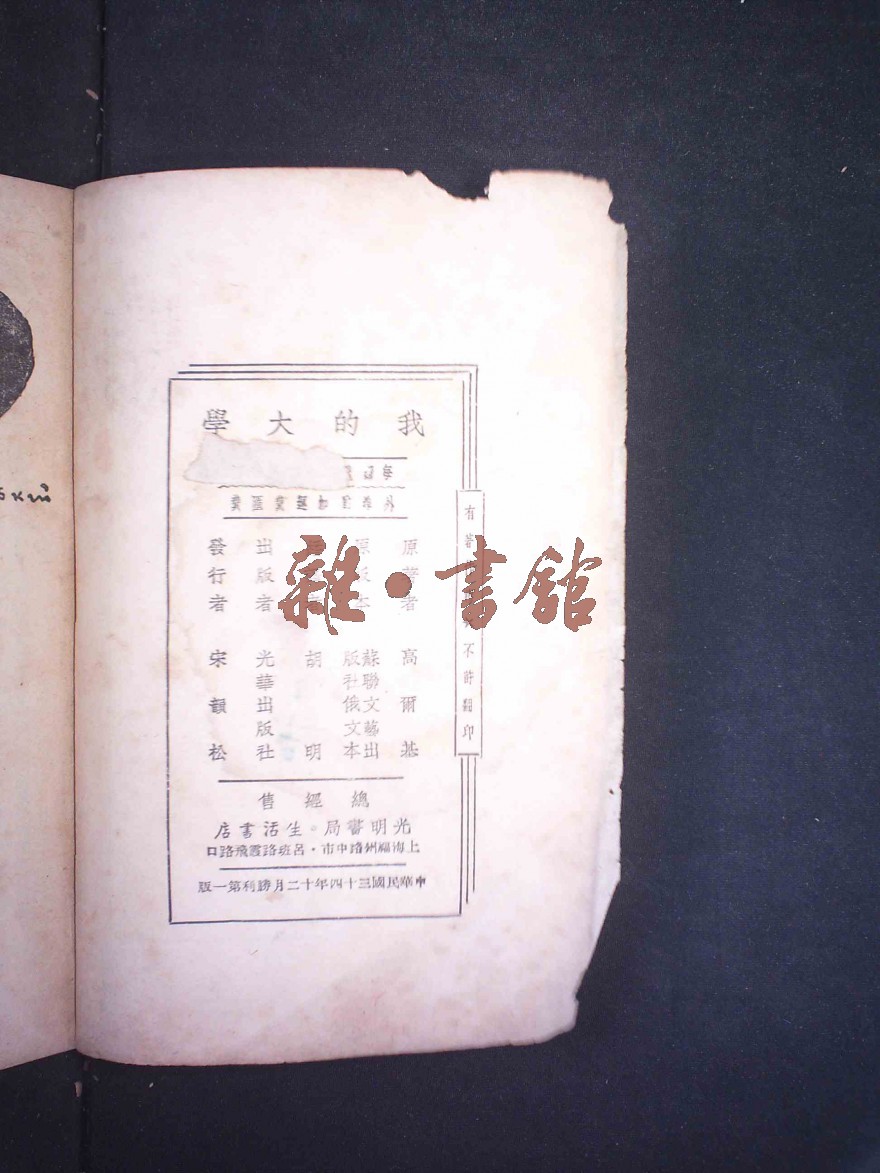 我的大學
每冊
外埠酌加 匯費
有著 不許翻印
原著者 高爾基
原版本 蘇聯文藝出版社俄文本
者 胡明
出版者 光華出版社
發行者 宋韻松
總經售
光明書局・生活書店
上海福州路中市・呂班路霞飛路口
中華民國三十四年十二月勝利第一版
雜・書館